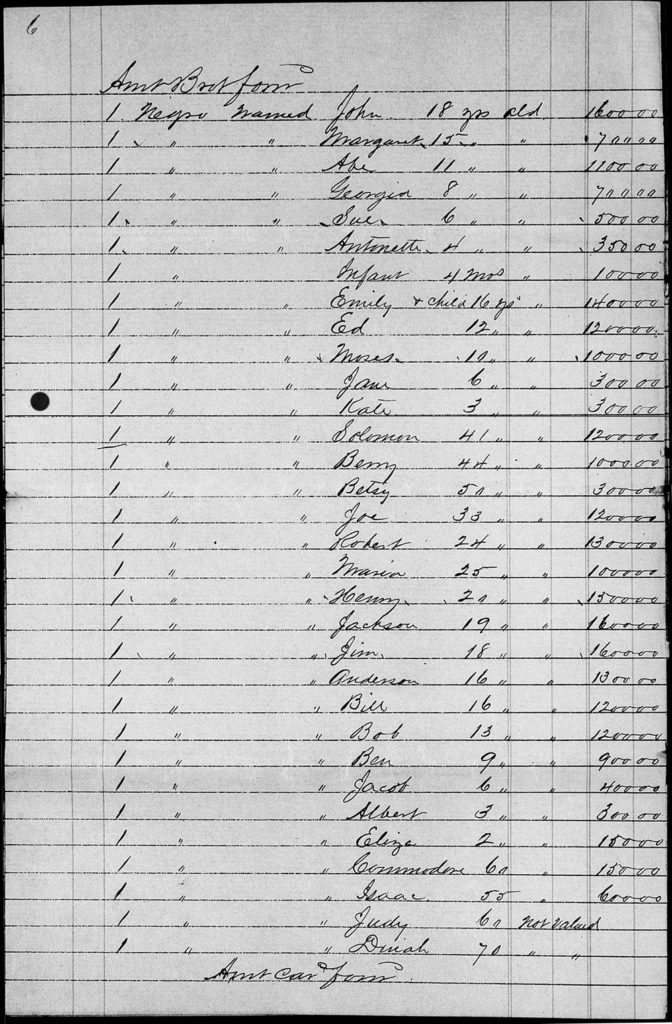 6
Amt Brot forw
1 Negro Named John 18 yrs old 1600 00
1 " " Margaret 15 " " 70000
1 " " Abe 11 " " 1100 00
1 " " Georgia 8 " " 70000
1 " " Sue 6 " " 500 00
1 " " Antonette 4 " " 350 00
1 " Infant 4 mos " 100 00
1 " " Emily & child 16 yrs " 1400 00
1 " " Ed 12 " " 1200 00
1 " " Moses 10 " " 1000 00
1 " " Jane 6 " " 300 00
1 " " Kate 3 " " 300 00
1 " " Solomon 41 " " 1200 00
1 " " Berry 44 " " 1000 00
1 " " Betsy 50 " " 300 00
1 " " Joe 33 " " 1200 00
1 " " Robert 24 " " 1300 00
1 " " Maria 25 " " 1000 00
1 " " Henry 20 " " 1500 00
1 " " Jackson 19 " " 1600 00
1 " " Jim 18 " " 1600 00
1 " " Anderson 16 " " 1300 00
1 " " Bill 16 " " 1200 00
1 " " Bob 13 " " 1200 00
1 " " Ben 9 " " 900 00
1 " " Jacob 6 " " 400 00
1 " " Albert 3 " " 300 00
1 " " Eliza 2 " " 150 00
1 " " Commodore 60 " 150 00
1 " " Isaac 55 " 600 00
1 " " Judy 60 Not Valued
1 " " Dinah 70 " "
Amt card forw